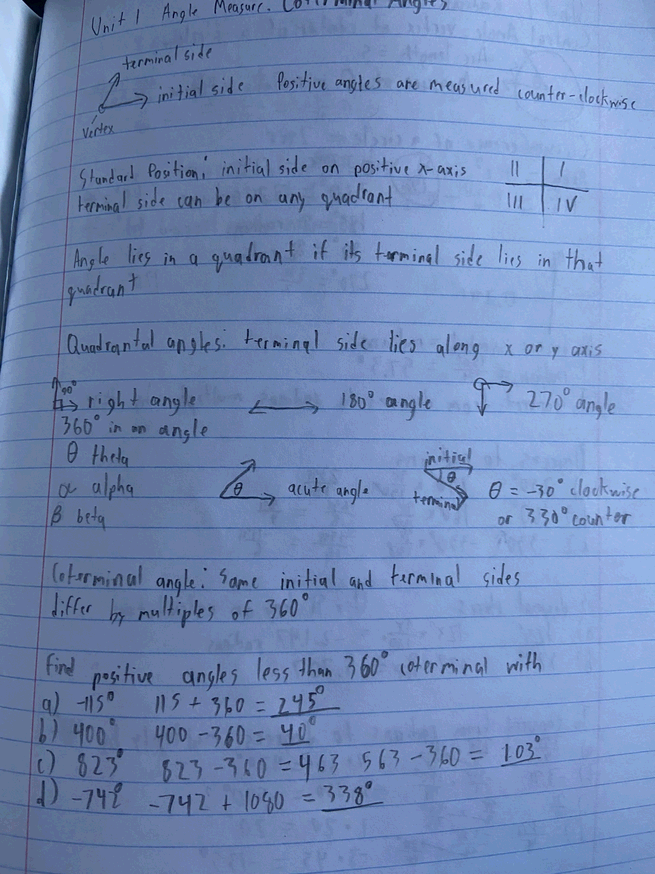 Unit 1 Angle Measure. Coterminal Angles
terminal side
initial side Positive angles are measured counter-clockwise
Vertex
Standard Position: initial side on positive x-axis
terminal side can be on any quadrant
II I
III IV
Angle lies in a quadrant if its terminal side lies in that
quadrant
Quadrantal angles: terminal side lies along x or y axis
90° right angle 180° angle 270° angle
360° in an angle
θ theta
α alpha
β beta
θ acute angle
initial
θ
terminal
θ = -30° clockwise
or 330° counter
Coterminal angle: Same initial and terminal sides
differ by multiples of 360°
Find positive angles less than 360° coterminal with
a) -115° 115 + 360 = 245°
b) 400° 400 - 360 = 40°
c) 823° 823 - 360 = 463 563 - 360 = 103°
d) -742° -742 + 1080 = 338°